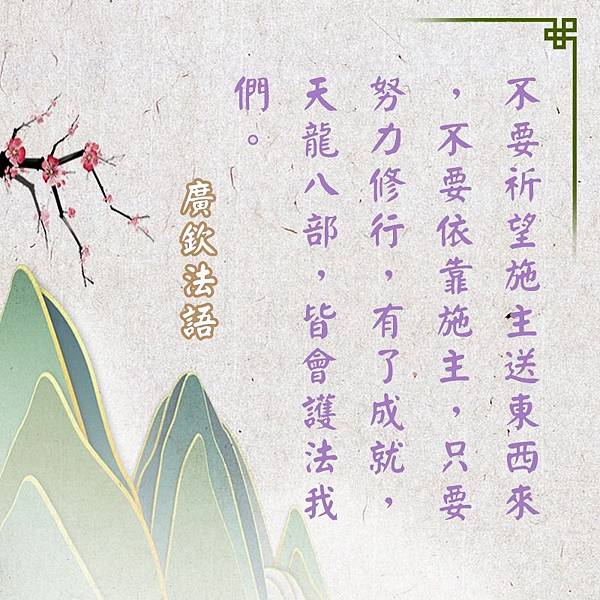 不要祈望施主送東西來
，不要依靠施主，只要
努力修行，有了成就，
天龍八部，皆會護法我
們。
廣欽法語